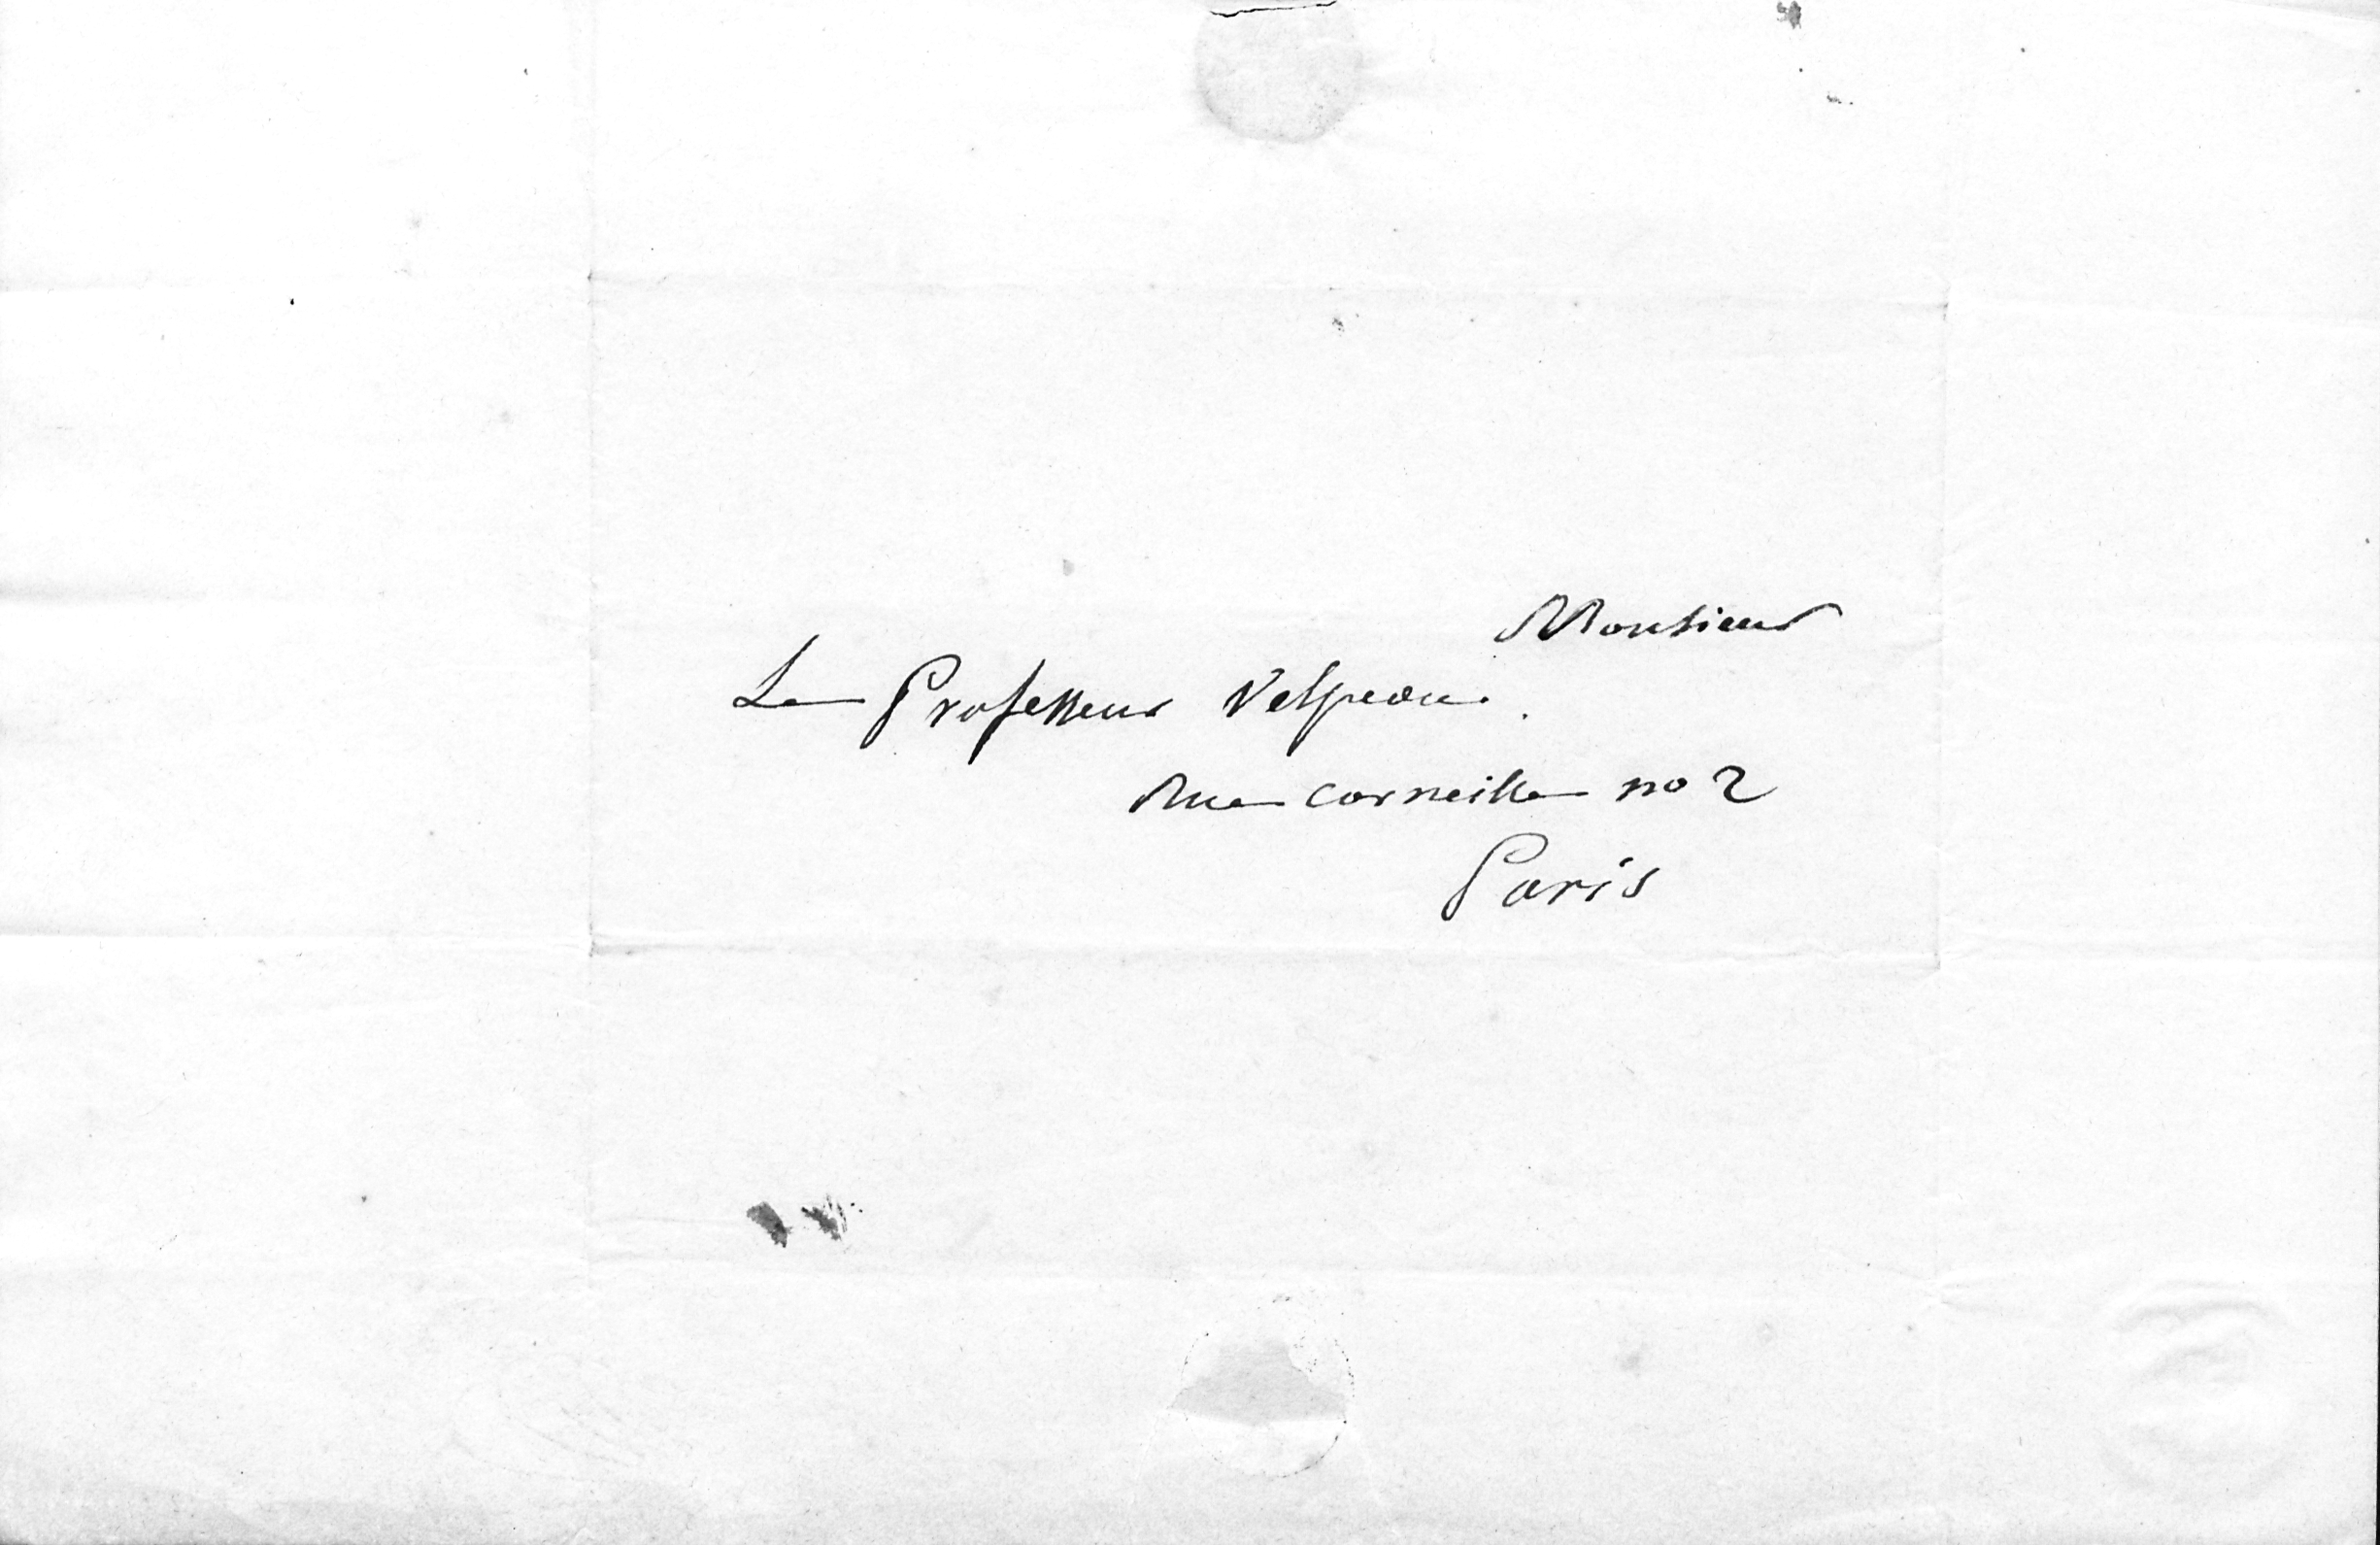 Monsieur
Le Professeur Velpeau.
Rue Corneille no 2
Paris